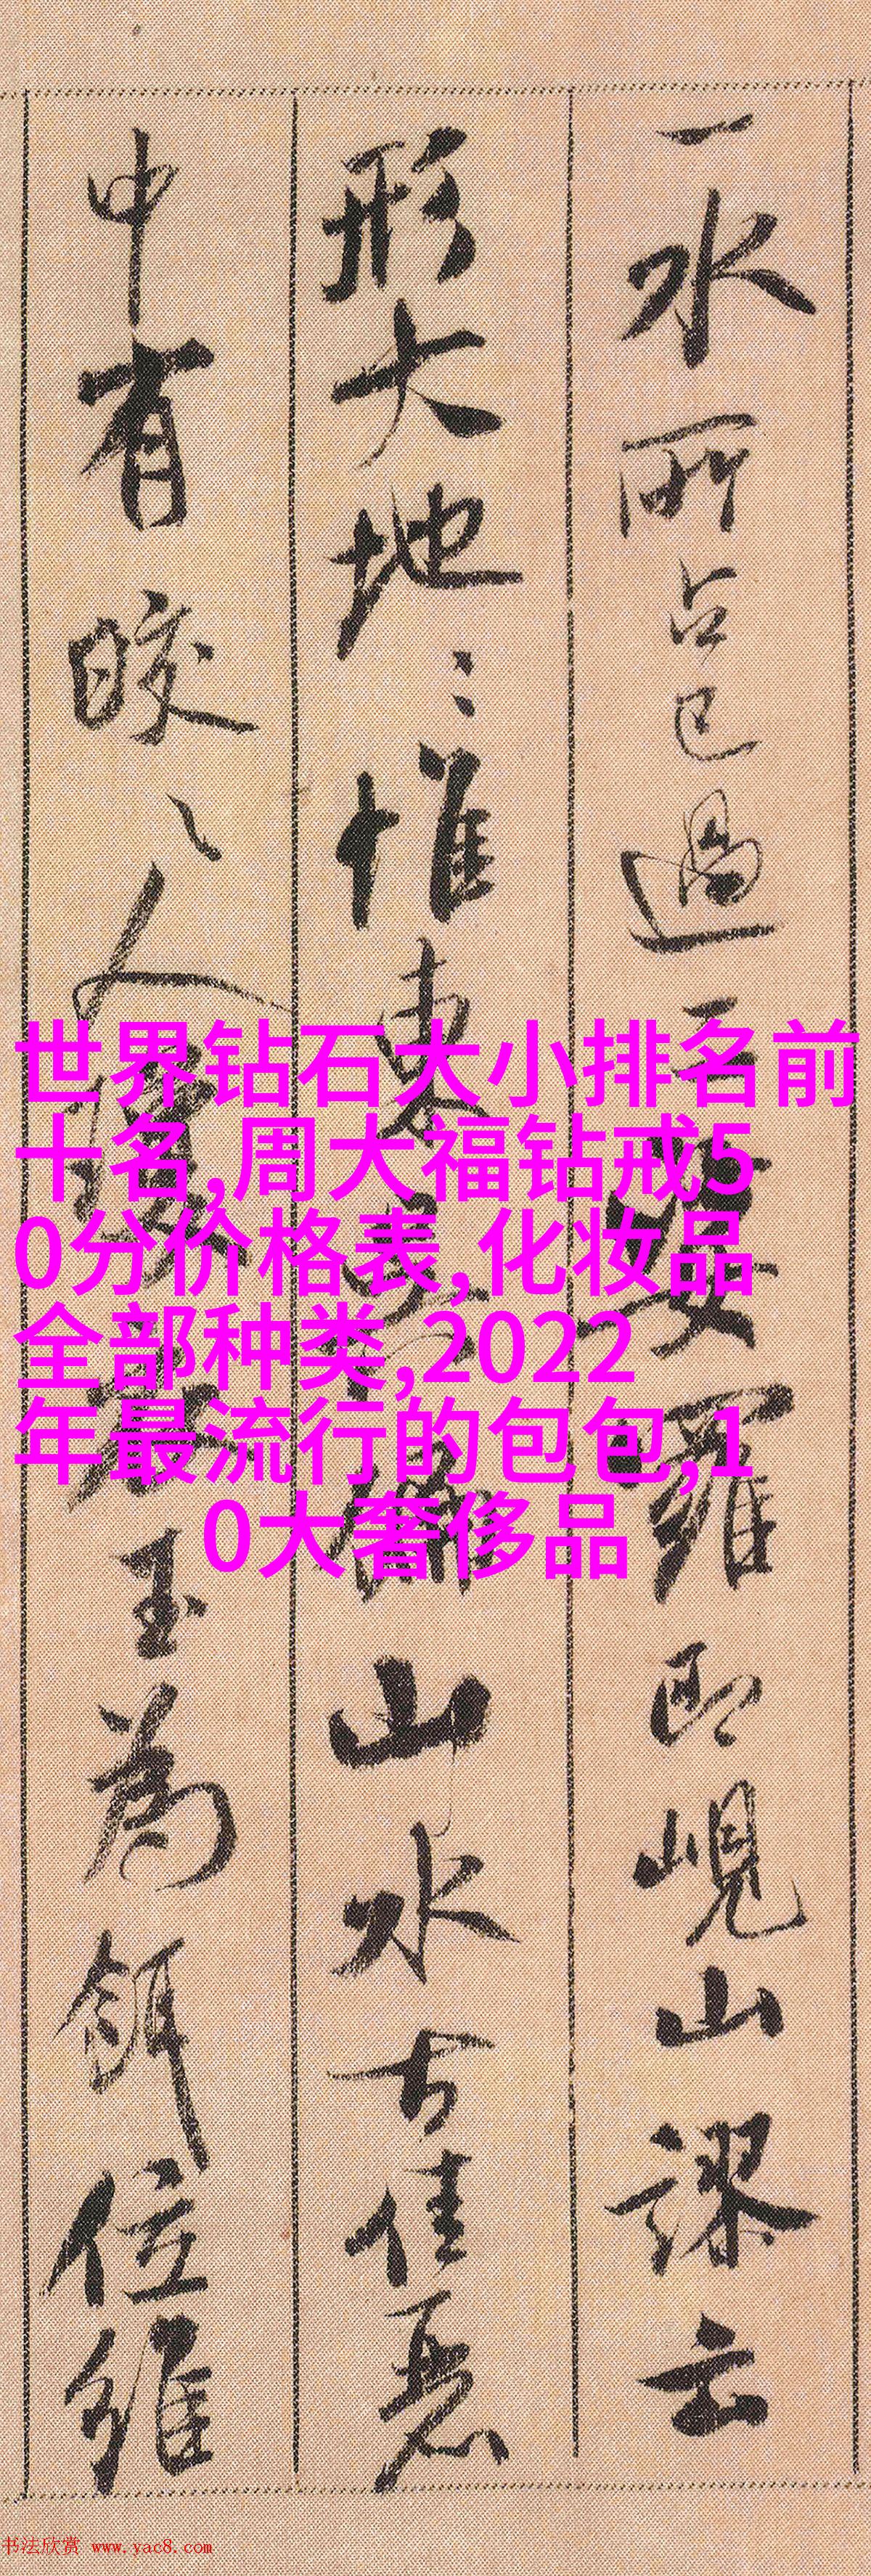 一水所占已過二
羅所峴山謬云
形大地〻惟東
山水古佳惡
中有皎〻人
玉為餌位維
世界钻石大小排名前
十名,周大福钻戒5
0分价格表,化妆品
全部种类,2022
年最流行的包包,1
0大奢侈品
书法欣赏 www.yac8.com